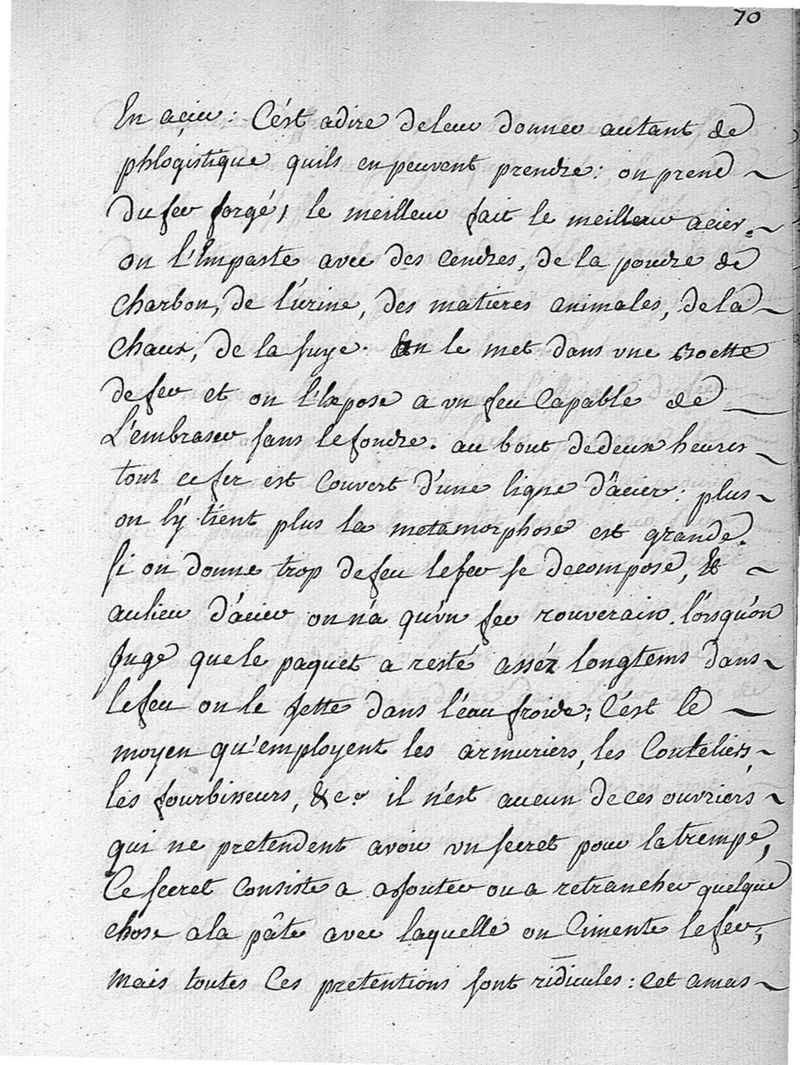 70
En acier : C'est adire deleur donner autant de
phlogistique quils en peuvent prendre : on prend
du fer forgé ; le meilleur fait le meilleur acier.
on l'Empaste avec des cendres, de la poudre de
charbon, de l'urine, des matieres animales, de la
chaux, de la suye. On le met dans une Boette
de fer et on l'Expose a un feu capable de
L'embraser sans le fondre. au bout de deux heures
tout ce fer est couvert d'une ligne d'acier : plus
on l'y tient plus la metamorphose est grande.
si on donne trop de feu le fer se decompose, &
aulieu d'acier on n'a qu'un fer rouverain. lorsqu'on
Juge que le paquet a resté assés longtems dans
le feu on le Jette dans l'eau froide ; C'est le
moyen qu'employent les armuriers, les Couteliers,
les fourbisseurs, &c. il n'est aucun de ces ouvriers
qui ne pretendent avoir un secret pour la trempe,
Ce secret consiste a ajouter ou a retrancher quelque
chose a la pâte avec laquelle on Cimente le fer,
mais toutes Ces pretentions sont ridicules : cet amas